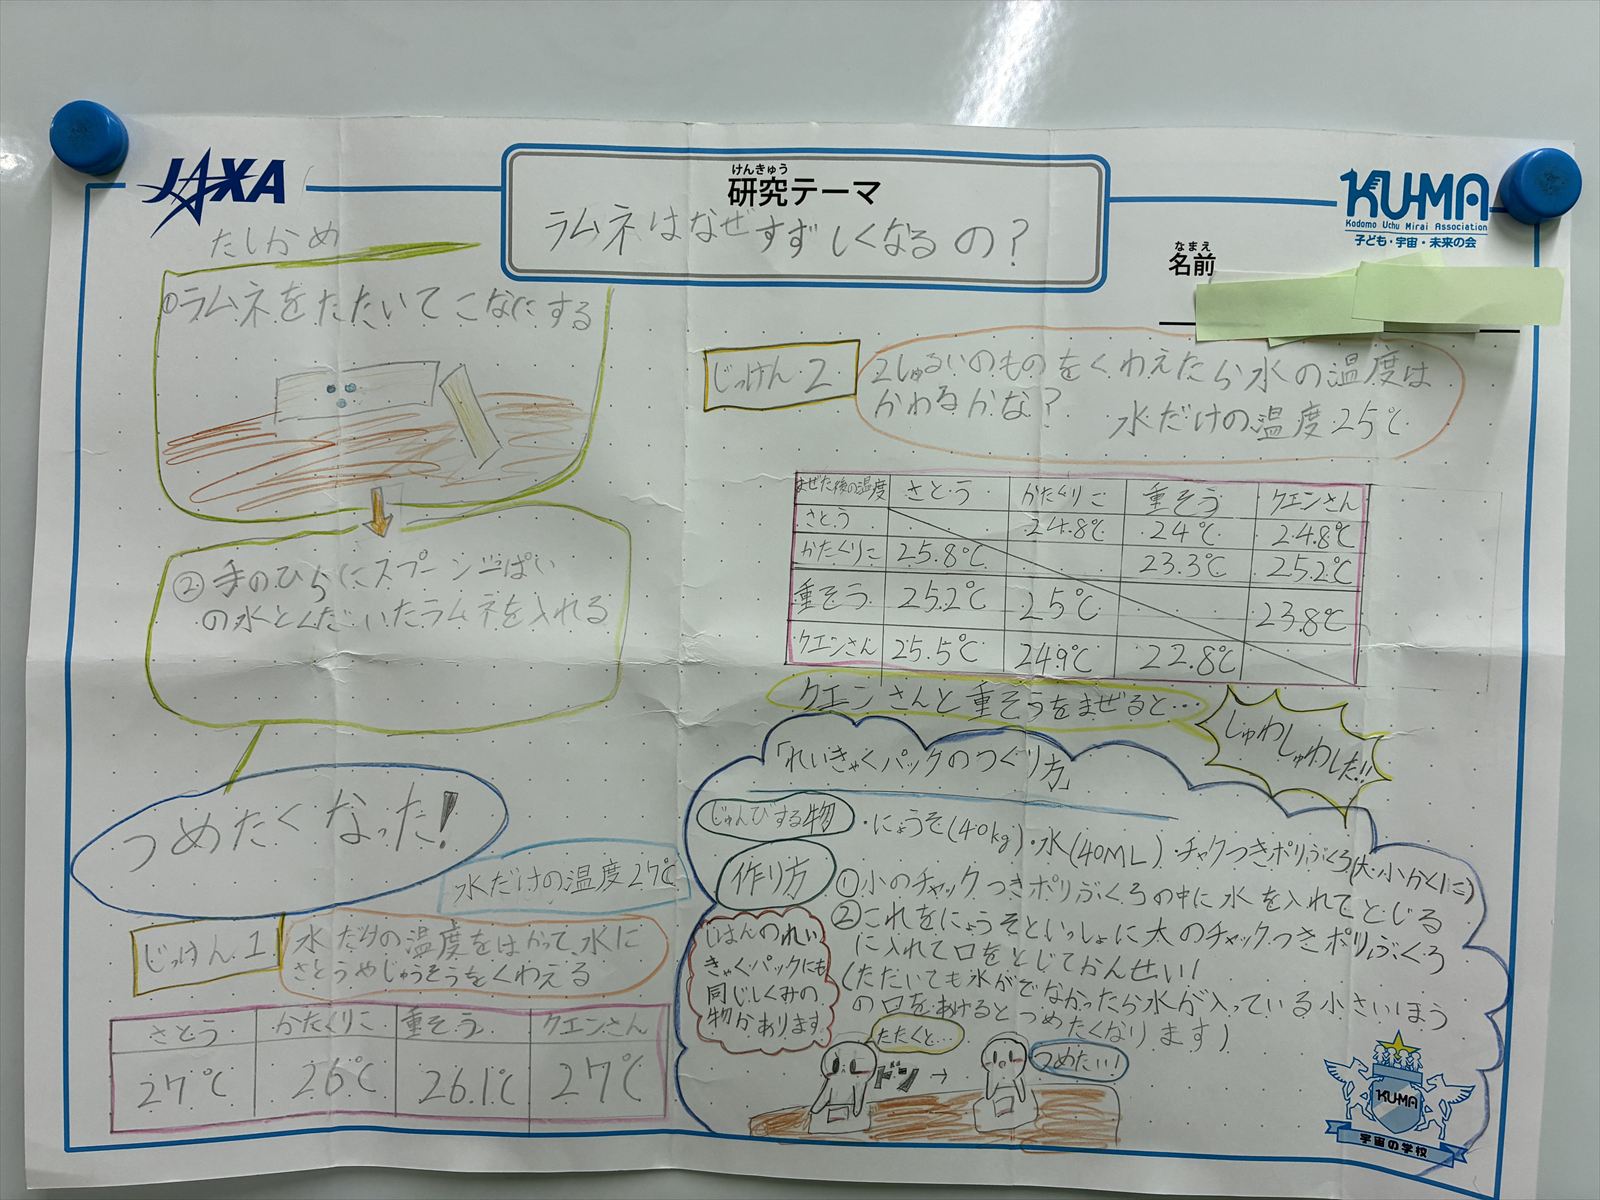 JAXA
けんきゅう
研究テーマ
ラムネはなぜすずしくなるの?
KU-MA
Kodomo Uchu Mirai Association
子ども・宇宙・未来の会
なまえ
名前
たしかめ
①ラムネをたたいてこなにする
②手のひらにスプーン一ぱい
の水とくだいたラムネを入れる
つめたくなった!
水だけの温度27℃
じっけん1
水だけの温度をはかって、水に
さとうやじゅうそうをくわえる
さとう かたくりこ 重そう クエンさん
27℃ 26℃ 26.1℃ 27℃
じっけん2
2しゅるいのものをくわえたら水の温度は
かわるかな?
水だけの温度25℃
まぜた後の温度 さとう かたくりこ 重そう クエンさん
さとう 24.8℃ 24℃ 24.8℃
かたくりこ 25.8℃ 23.3℃ 25.2℃
重そう 25.2℃ 25℃ 23.8℃
クエンさん 25.5℃ 24.9℃ 22.8℃
クエンさんと重そうをまぜると…
しゅわしゅわした!!
「れいきゃくパックのつくり方」
じゅんびする物
・にょうそ(40kg)・水(40ML)・チャクつきポリぶくろ(大・小かく1こ)
作り方
①小のチャックつきポリぶくろの中に水を入れてとじる
②これをにょうそといっしょに大のチャックつきポリぶくろ
に入れて口をとじてかんせい!
(たたいても水がでなかったら水が入っている小さいほう
の口をあけるとつめたくなります)
じはんのれい
きゃくパックにも
同じしくみの
物があります
たたくと…
ドン
→
つめたい!
KU-MA
宇宙の学校